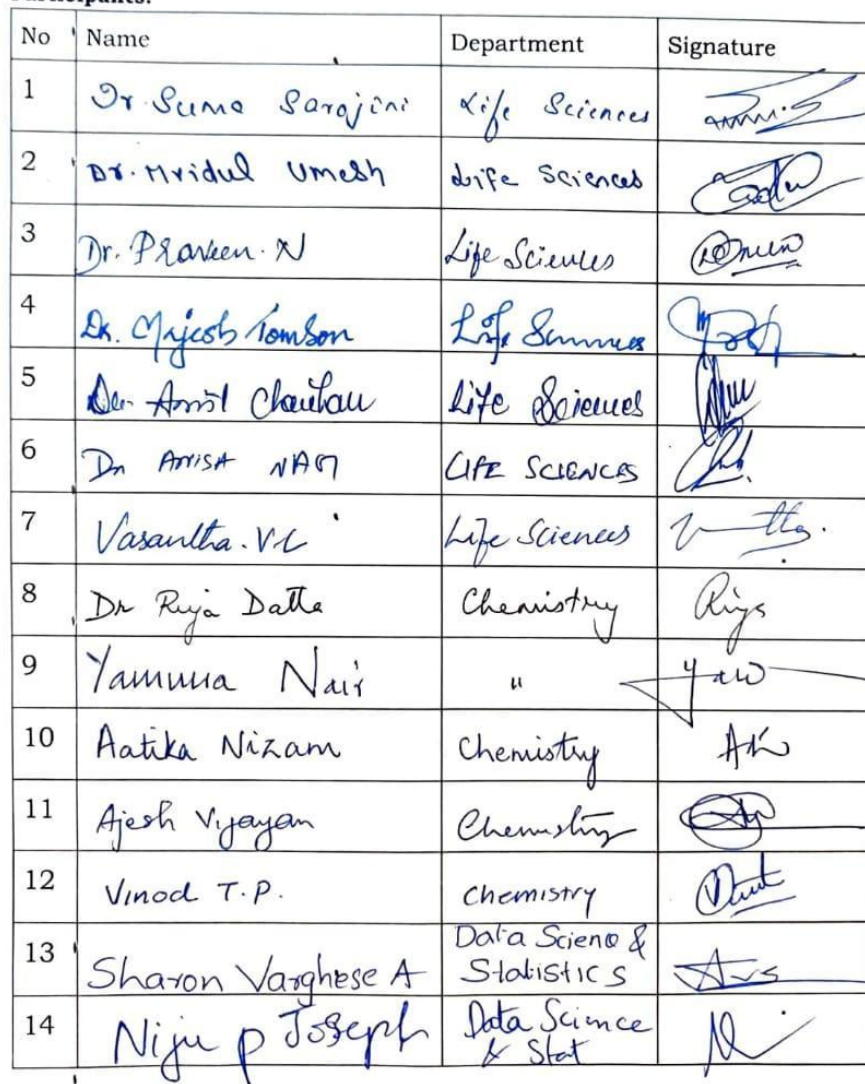 Participants:
No Name Department Signature
1 Dr. Suma Sarojini Life Sciences
2 Dr. Mridul Umesh Life Sciences
3 Dr. Praveen. N Life Sciences
4 Dr. Tomson Life Sciences
5 Dr. Chauhan Life Sciences
6 Dr ANISA NAG LIFE SCIENCES
7 Vasantha. V.C Life Sciences
8 Dr Riya Datta Chemistry Riya
9 Yamuna Nair "
10 Aatika Nizam Chemistry AN
11 Ajesh Vijayan Chemistry
12 Vinod T.P. Chemistry
13 Sharon Varghese A Data Science &
Statistics
14 Niju P Joseph Data Science
& Stat